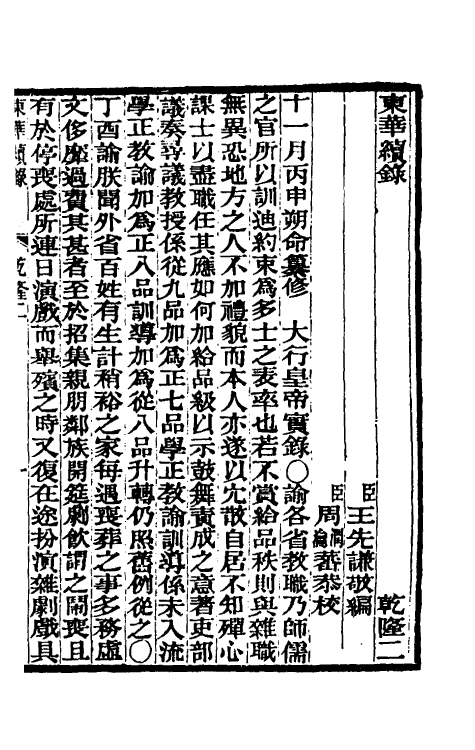 東華續錄　乾隆二
臣王先謙敬編
臣周潤蕃周瀹蕃恭校
十一月丙申朔命纂修　大行皇帝實錄○諭各省教職乃師儒
之官所以訓迪約束爲多士之表率也若不賞給品秩則與雜職
無異恐地方之人不加禮貌而本人亦遂以冗散自居不知殫心
課士以盡職任其應如何加給品級以示鼓舞責成之意著吏部
議奏尋議教授係從九品加爲正七品學正教諭訓導係未入流
學正教諭加爲正八品訓導加爲從八品升轉仍照舊例從之○
丁酉諭朕聞外省百姓有生計稍裕之家每遇喪葬之事多務虛
文侈靡過費其甚者至於招集親朋鄰族開筵劇飲謂之鬧喪且
有於停喪處所連日演戲而舉殯之時又復在途扮演雜劇戲具
東華續錄　乾隆二